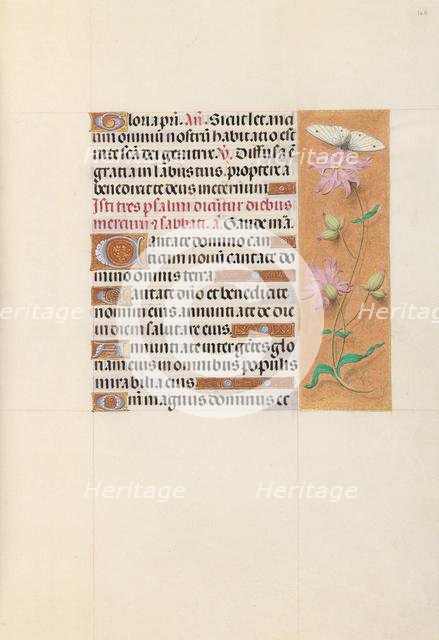 148
Gloria pri. An̄. Sicut let. anci
um omniū nostrū habitatio est
in te sc̄a dei genitrix. V̄. Diffusa ē
gratia in labiis tuis. propterea
benedixit te deus in eternum
Isti tres psalmi dicuntur diebus
mercurii ⁊ sabbati. ā. Gaude mā.
Cantate domino can
ticum nouū cantate do
mino omnis terra.
Cantate dn̄o et benedicite
nomini eius annuntiate de die
in diem salutare eius.
Annuntiate inter gētes glo
riam eius in omnibus populis
mirabilia eius.
Qm̄ magnus dominus et
Heritage
Heritage
Heritage
Heritage
Heritage
Heritage